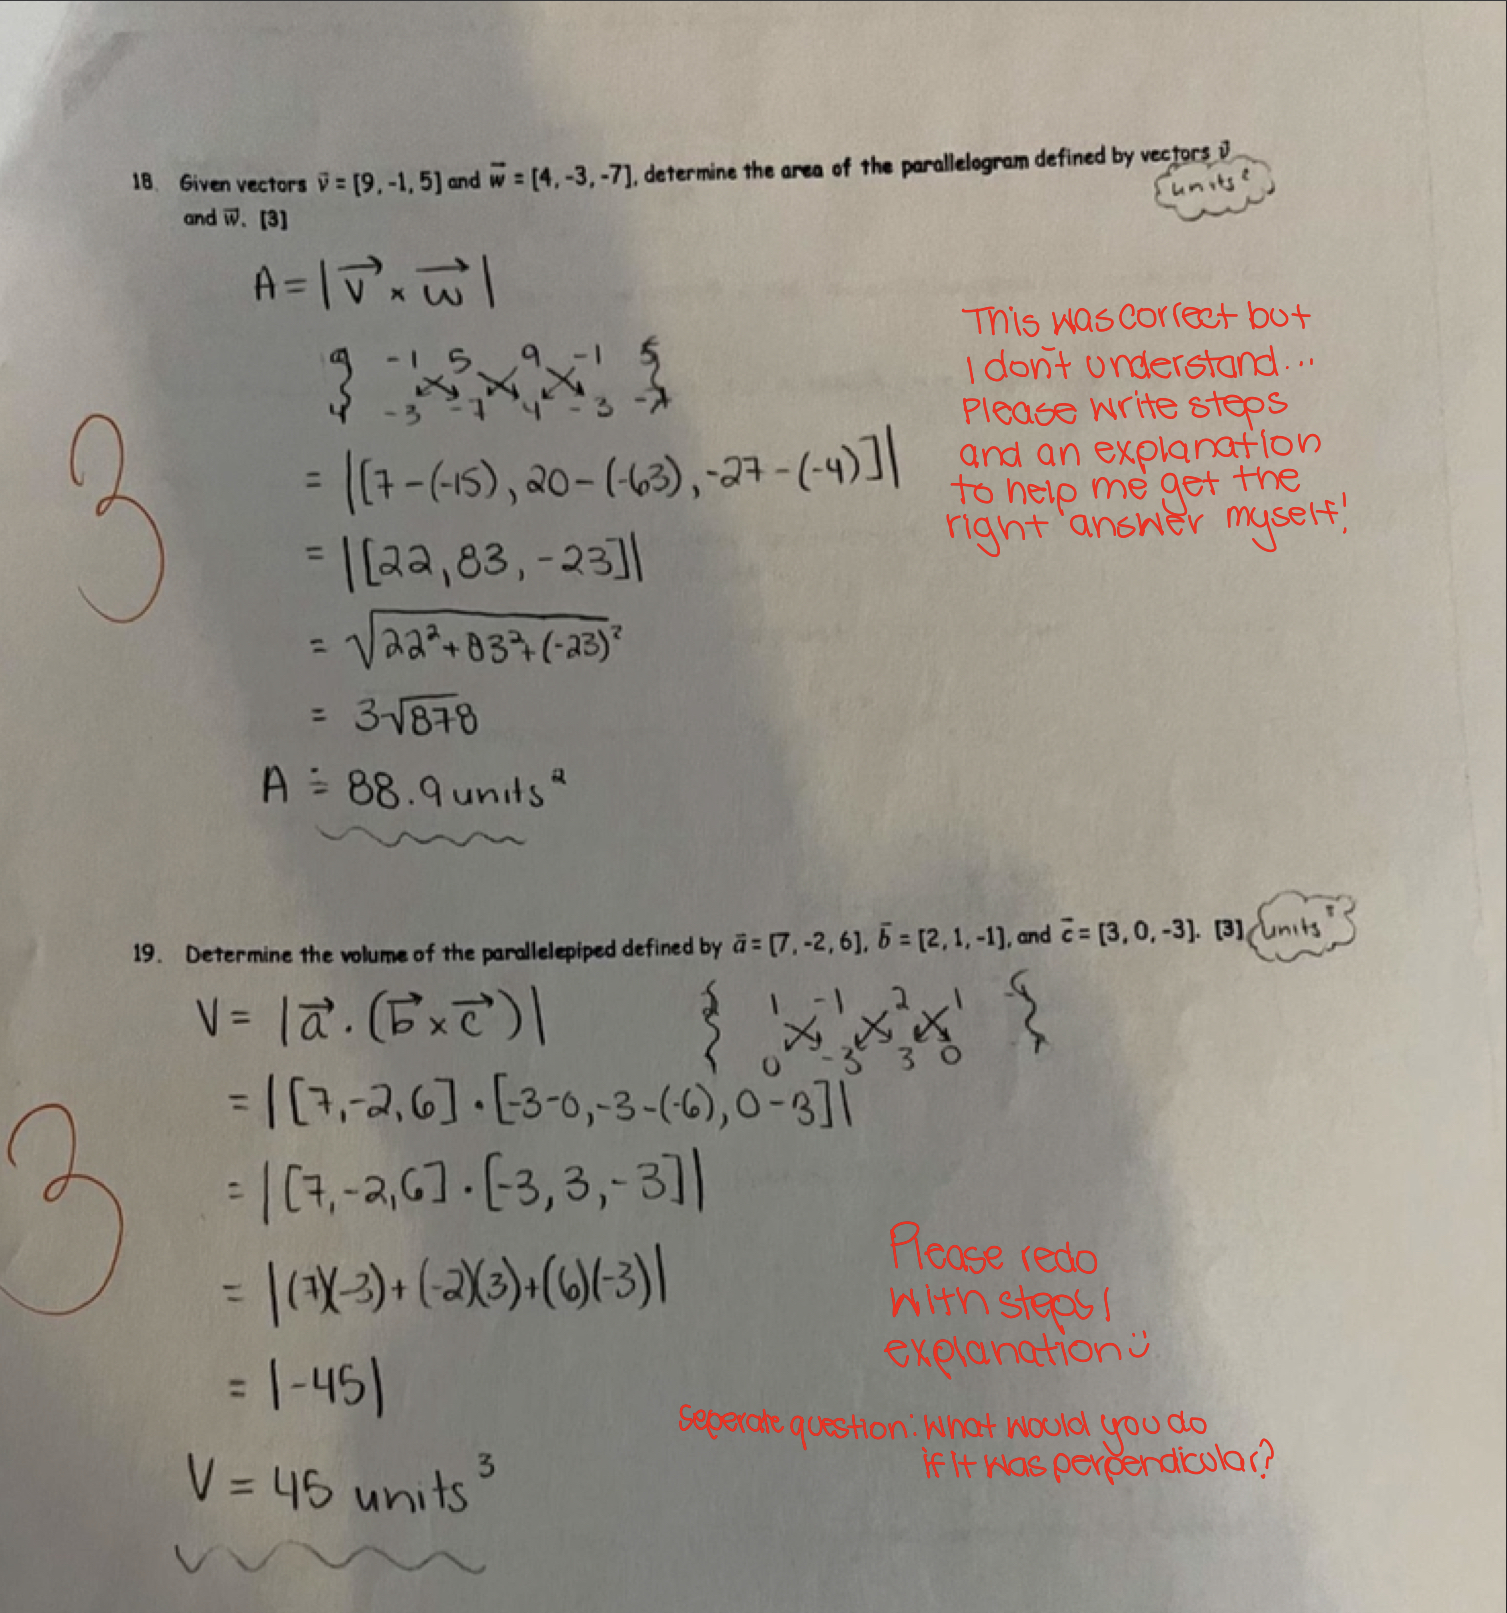 18. Given vectors v⃗ = [9, -1, 5] and w⃗ = [4, -3, -7], determine the area of the parallelogram defined by vectors v⃗
and w⃗. [3]
units²
A = |v⃗ × w⃗|
9 -1 5 9 -1 5
4 -3 -7 4 -3 -7
= |[7-(-15), 20-(-63), -27-(-4)]|
= |[22, 83, -23]|
= √22² + 83² + (-23)²
= 3√878
A ≐ 88.9 units²
3
This was correct but
I don't understand...
Please write steps
and an explanation
to help me get the
right answer myself!
19. Determine the volume of the parallelepiped defined by a⃗ = [7, -2, 6], b⃗ = [2, 1, -1], and c⃗ = [3, 0, -3]. [3]
units³
V = |a⃗ · (b⃗ × c⃗)|
{ 1 -1 2 1 }
0 -3 3 0
= |[7, -2, 6] · [-3-0, -3-(-6), 0-3]|
= |[7, -2, 6] · [-3, 3, -3]|
= |(7)(-3) + (-2)(3) + (6)(-3)|
= |-45|
V = 45 units³
3
Please redo
with steps/
explanation :)
Seperate question: What would you do
if it was perpendicular?